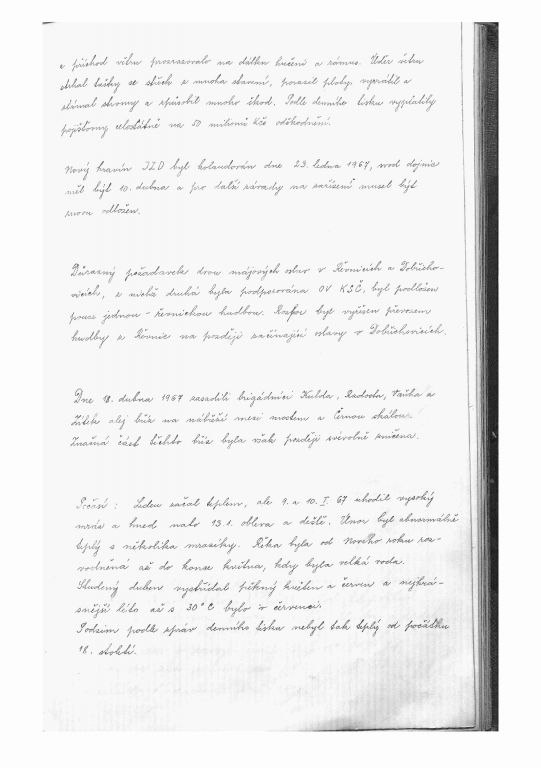 a příchod vichru prozrazovalo na dálku hučení a rámus. Úder větru
strhal tašky se střech z mnoha stavení, porazil ploty, vyvrátil a
slámal stromy a způsobil mnoho škod. Podle denního tisku vyplatily
pojišťovny celostátně na 50 milionů Kčs odškodnění.
Nový kravín JZD byl kolaudován dne 23. ledna 1967, svod dojnic
měl být 10. dubna a pro další závady na zařízení musel být
znovu odložen.
Důrazný požadavek dvou májových oslav v Řevnicích a Dobřicho-
vicích, z nichž druhá byla podporována OV KSČ, byl podložen
pouze jednou - řevnickou hudbou. Rozpor byl vyřešen převozem
hudby z Řevnic na později začínající oslavy v Dobřichovicích.
Dne 18. dubna 1967 zasadili brigádníci Kulda, Radosta, Vaňha a
Zítek alej bříz na nábřeží mezi mostem a Černou skálou.
Značná část těchto bříz byla však později svévolně zničena.
Počasí : Leden začal teplem, ale 9. a 10. I. 67 uhodil vysoký
mráz a hned nato 13.1. obleva a deště. Únor byl abnormálně
teplý s několika mrazíky. Řeka byla od Nového roku roz-
vodněná až do konce května, kdy byla velká voda.
Studený duben vystřídal pěkný květen a červen a nejkrá-
snější léto až s 30° C bylo v červenci.
Podzim podle zpráv denního tisku nebyl tak teplý od počátku
18. století.